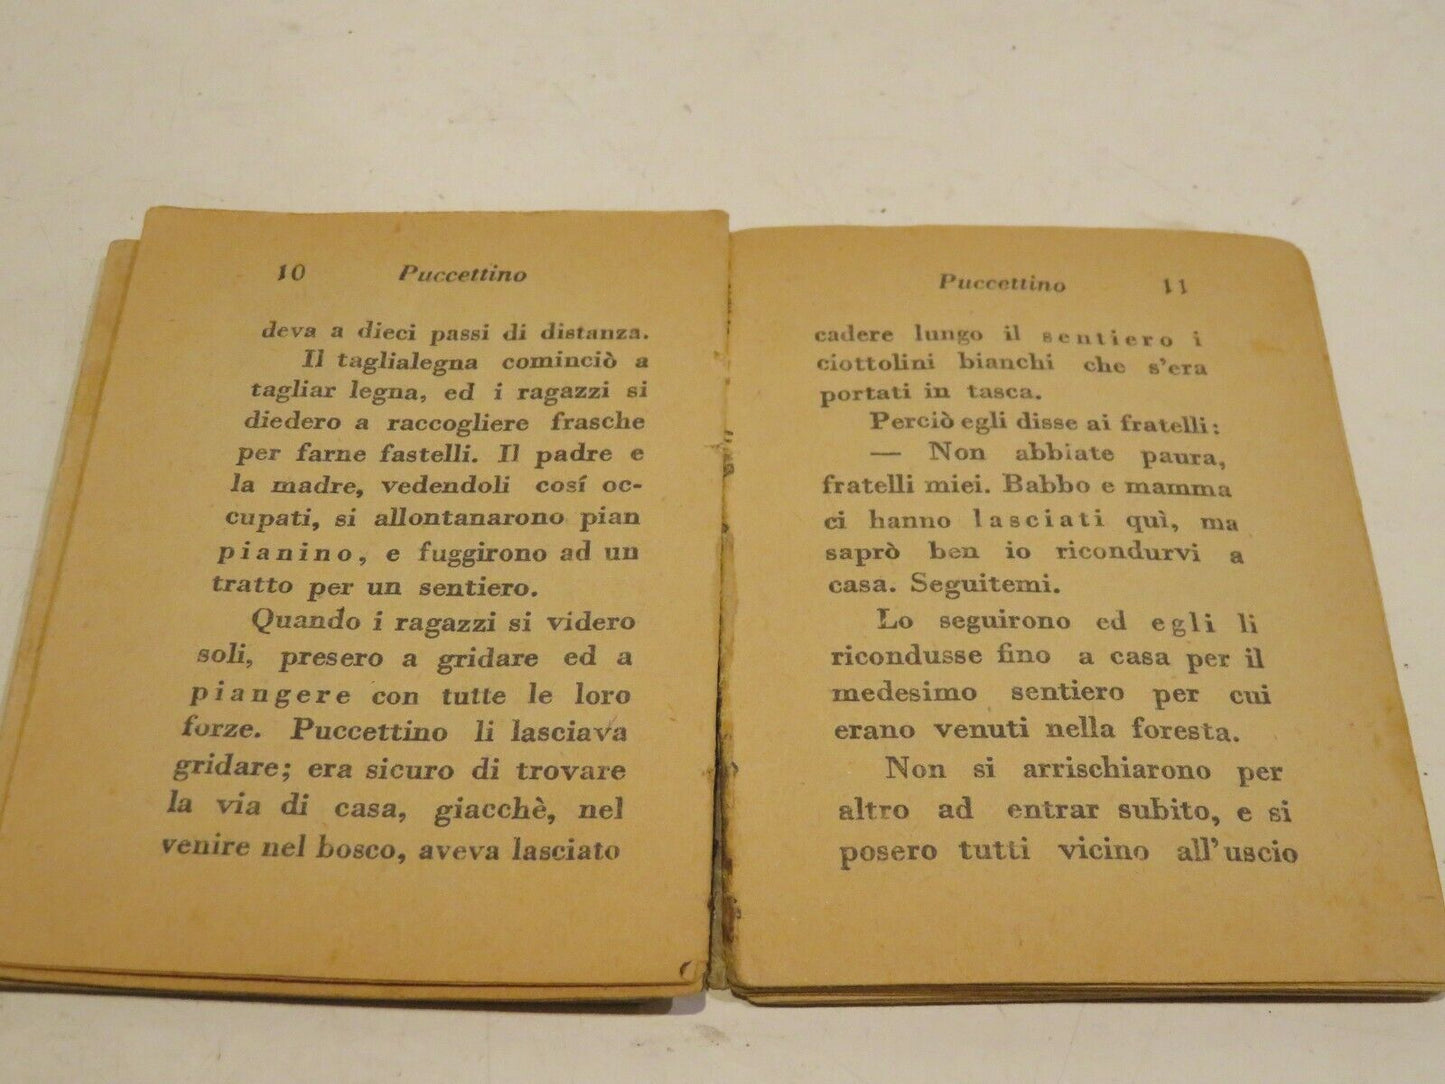 10 Puccettino
deva a dieci passi di distanza.
Il taglialegna cominciò a
tagliar legna, ed i ragazzi si
diedero a raccogliere frasche
per farne fastelli. Il padre e
la madre, vedendoli cosí oc-
cupati, si allontanarono pian
pianino, e fuggirono ad un
tratto per un sentiero.
Quando i ragazzi si videro
soli, presero a gridare ed a
piangere con tutte le loro
forze. Puccettino li lasciava
gridare; era sicuro di trovare
la via di casa, giacchè, nel
venire nel bosco, aveva lasciato
Puccettino 11
cadere lungo il sentiero i
ciottolini bianchi che s'era
portati in tasca.
Perciò egli disse ai fratelli:
— Non abbiate paura,
fratelli miei. Babbo e mamma
ci hanno lasciati quì, ma
saprò ben io ricondurvi a
casa. Seguitemi.
Lo seguirono ed egli li
ricondusse fino a casa per il
medesimo sentiero per cui
erano venuti nella foresta.
Non si arrischiarono per
altro ad entrar subito, e si
posero tutti vicino all'uscio